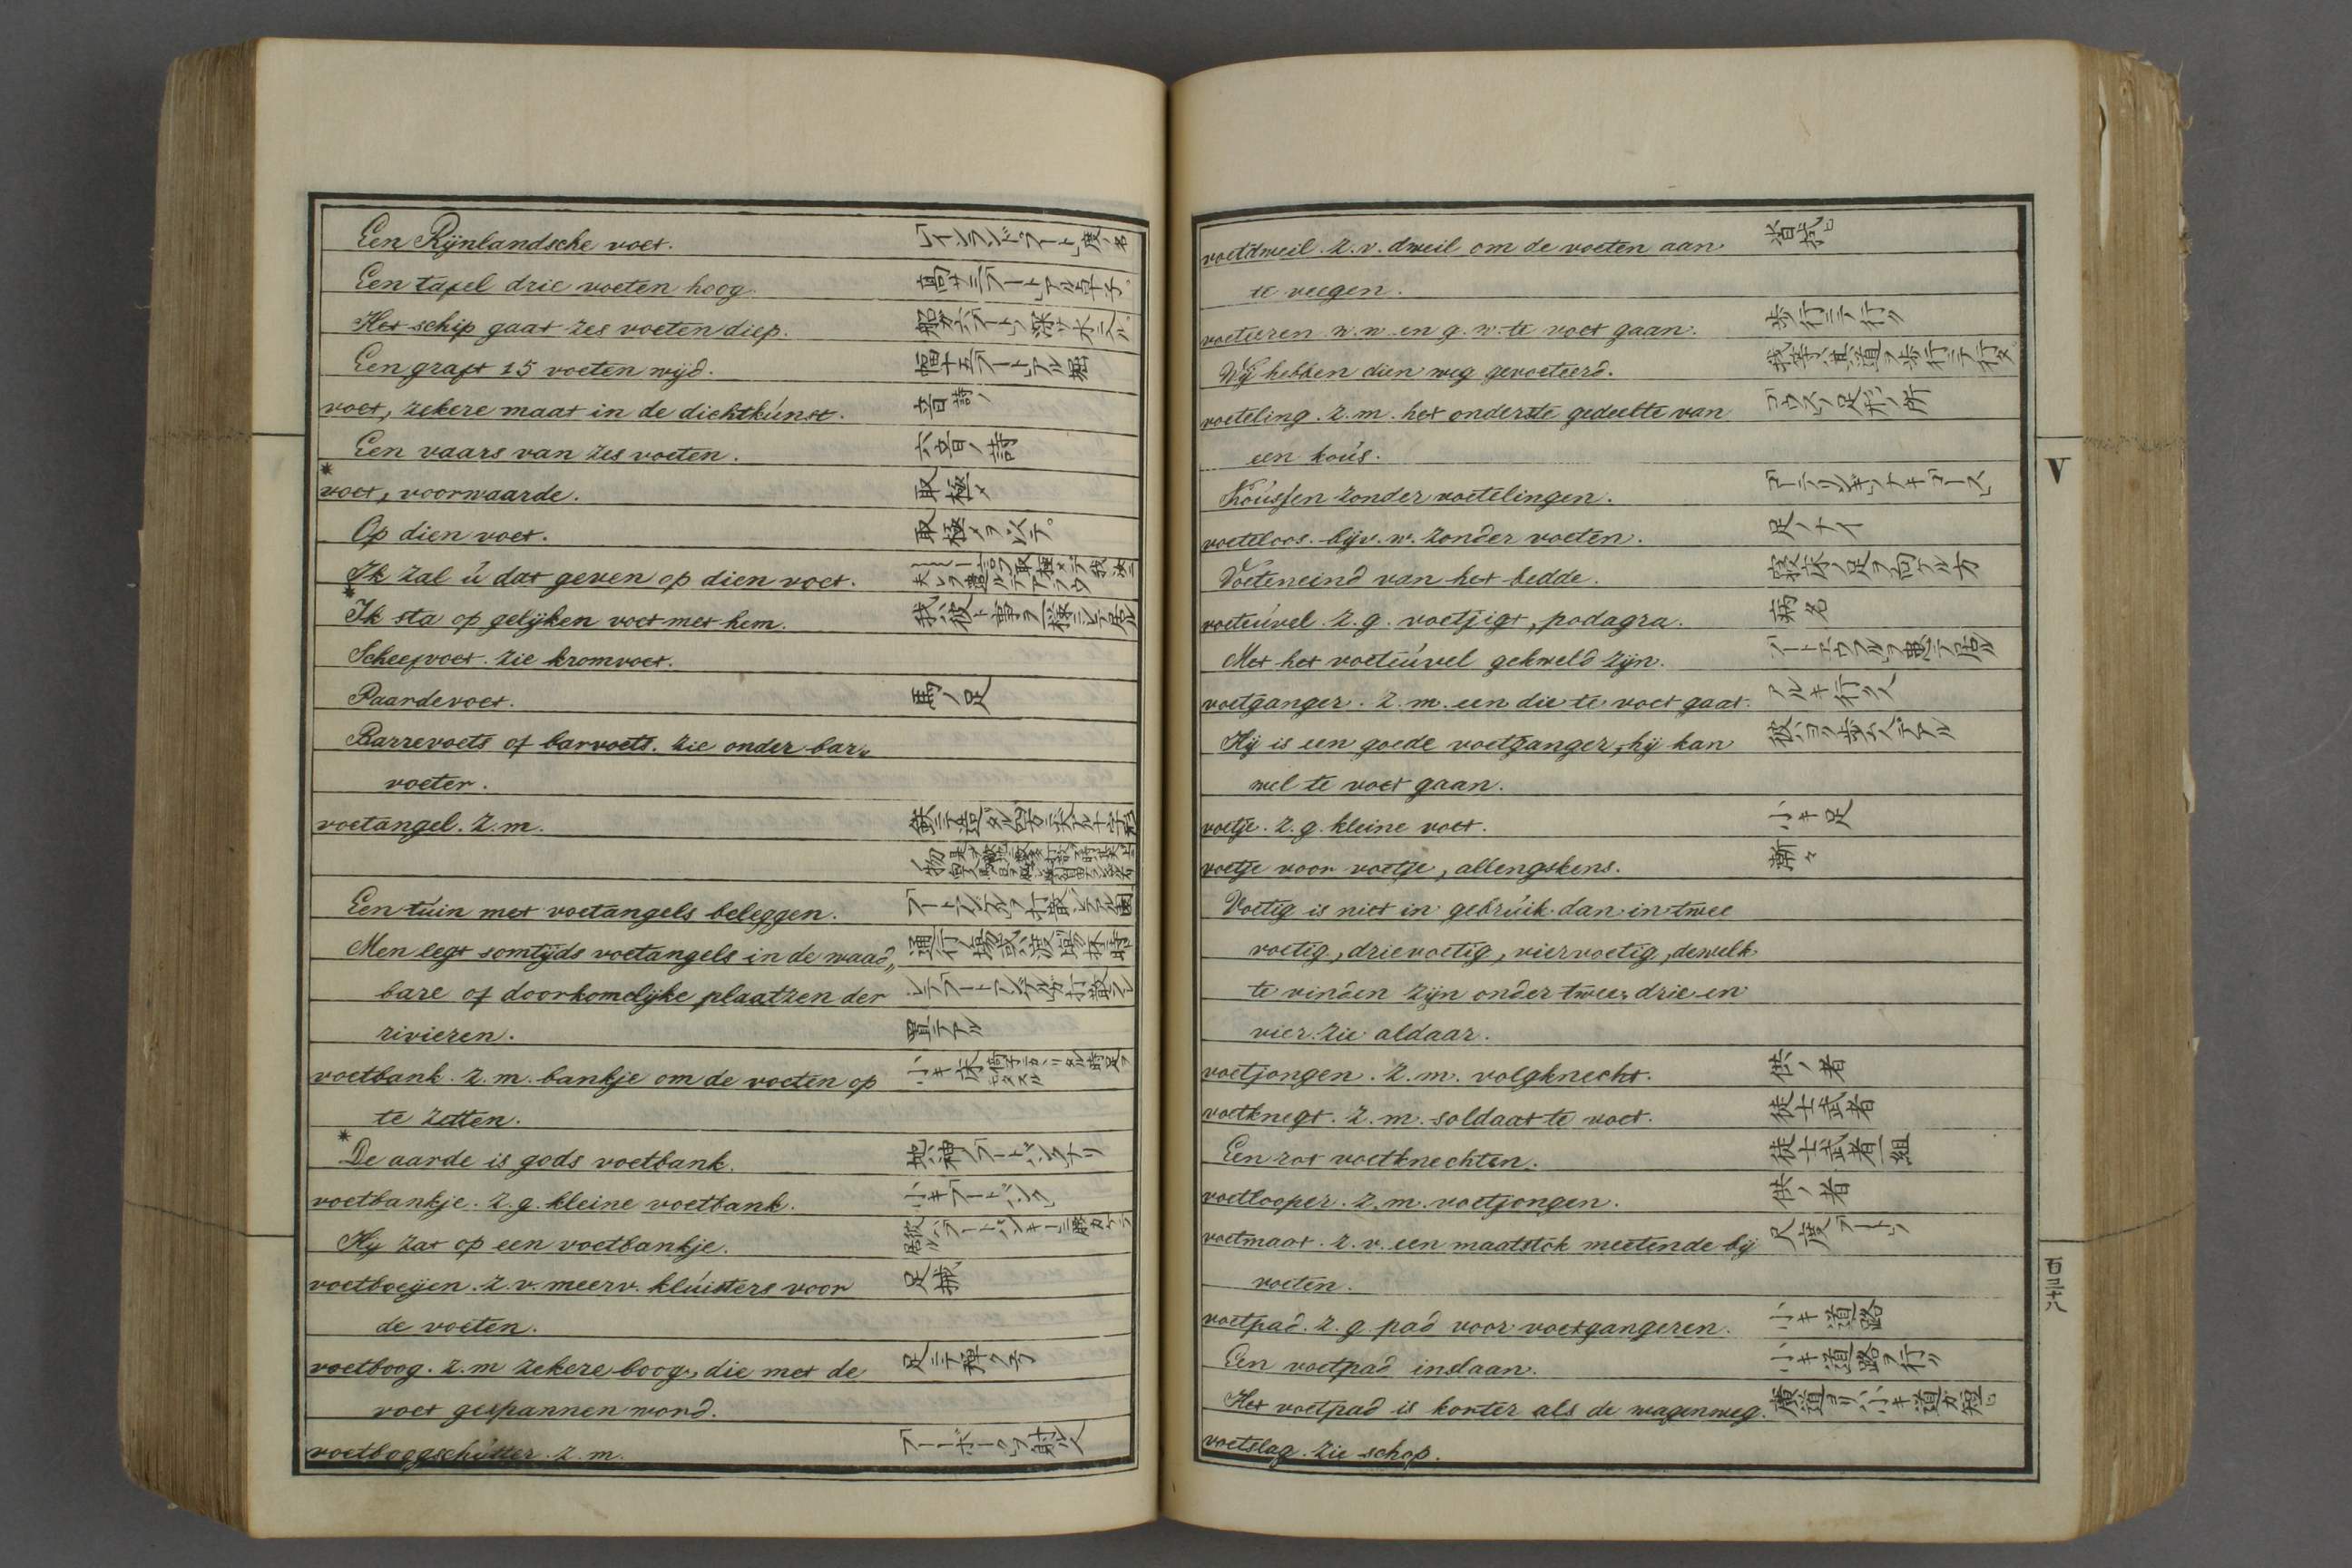 Een Rijnlandsche voet.
Een tafel drie voeten hoog.
Het schip gaat zes voeten diep.
Een graft 15 voeten wijd. 幅十五フートアル堀
voet, zekere maat in de dichtkúnst.
Een vaars van zes voeten. 六音ノ詩
voet, voorwaarde. 取極メ
Op dien voet. 取極メヲ以テ。
Ik zal ú dat geven op dien voet.
Ik sta op gelijken voet met hem.
Scheefvoet. zie kromvoet.
Paardevoet. 馬ノ足
Barrevoets of barvoets. zie onder bar„
voeter.
voetangel. z. m.
Een túin met voetangels beleggen.
Men legt somtijds voetangels in de waad„
bare of doorkomelijke plaatzen der
rivieren. 置テアル
voetbank. z. m. bankje om de voeten op
te zetten.
De aarde is gods voetbank. 地ハ神ノフートバンクナリ
voetbankje. z. g. kleine voetbank. 小キフートバンク
Hij zat op een voetbankje.
voetboeijen. z. v. meerv. klúisters voor 足械
de voeten.
voetboog. z. m zekere boog, die met de 足ニテ弾ク弓
voet gespannen word.
voetboogschútter. z. m. フートボーグヲ射ル人
voetdweil. z. v. dweil om de voeten aan
te veegen.
voeteren w. w. en g. w. te voet gaan. 歩行ニテ行ク
Wij hebben dien weg gevoeteerd.
voeteling. z. m. het onderste gedeelte van
een koús.
Koússen zonder voetelingen.
voeteloos. bijv. w. zonder voeten. 足ノナイ
Voeteneind van het bedde. 寝床ノ足ヲ向ケル方
voeteúvel z. g. voetjigt, podagra. 病名
Met het voeteúvel gekweld zijn.
voetganger. z. m. een die te voet gaat. アルキ行ク人
Hij is een goede voetganger, hij kan
wel te voet gaan.
voetje. z. g. kleine voet. 小キ足
voetje voor voetje, allengskens. 漸々
Voetig is niet in gebrúik dan in twee
voetig, drievoetig, viervoetig, dewelk
te vinden zijn onder twee, drie en
vier. zie aldaar.
voetjongen. z. m. volgknecht. 供ノ者
voetknegt. z. m. soldaat te voet. 徒士武者
Een rot voetknechten. 徒士武者一組
voetlooper. z. m. voetjongen. 供ノ者
voetmaat. z. v. een maatstok meetende bij
voeten.
voetpad. z. g. pad voor voetgangeren. 小キ道路
Een voetpad inslaan. 小キ道路ヲ行ク
Het voetpad is korter als de wagenweg.
voetslag. zie schop.
V
百三十八